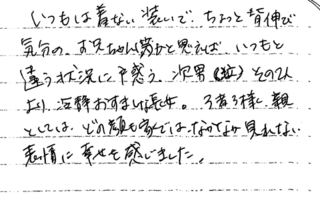 いつもは着ない装いで、ちょっと背伸び
気分の、お兄ちゃん男かと思えば、いつもと
違う状況に戸惑う、次男(泣)そのひ
より、深呼おすましな長女。3者3様に、親
としては、どの顔も家ではなかなか見れない
表情に幸せを感じました。